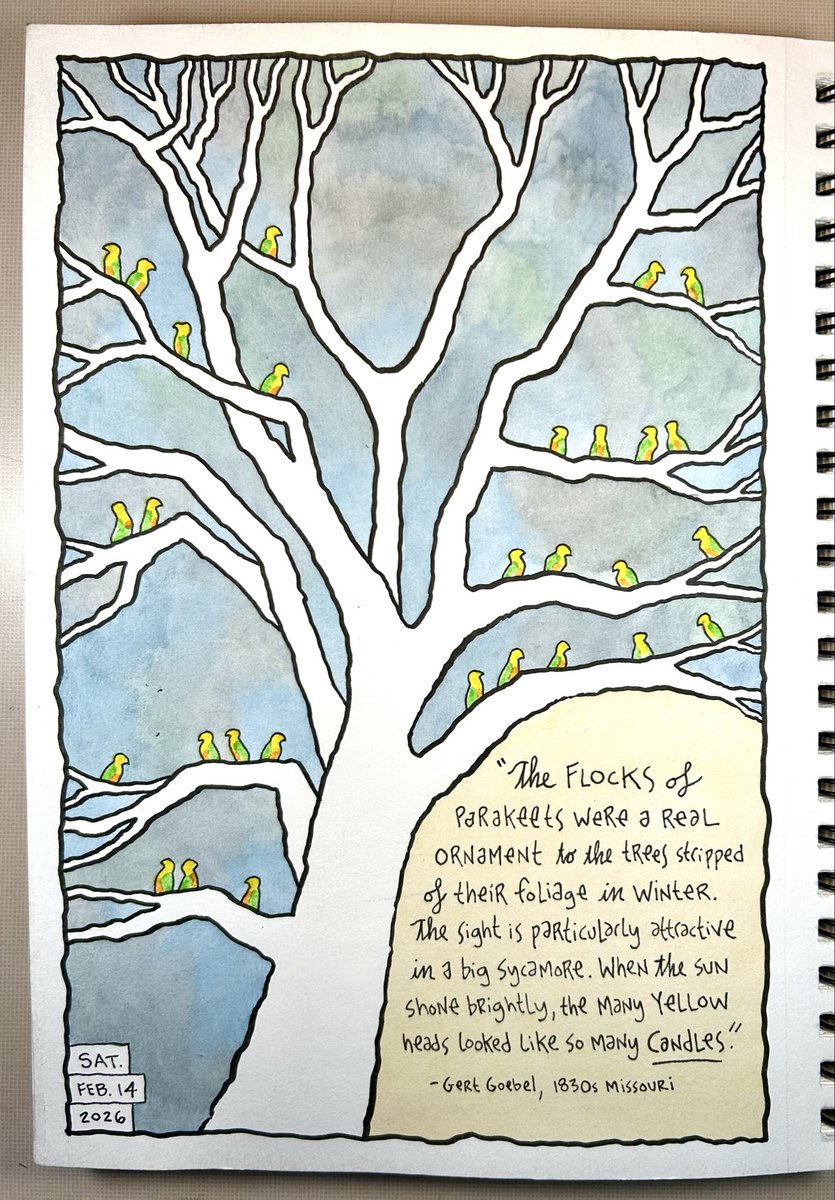 "The FLOCKS of
Parakeets were a real
ORNAMENT to the trees stripped
of their foliage in WINTER.
The sight is particularly attractive
in a big sycamore. When the sun
shone brightly, the many yellow
heads looked like so many Candles."
- Gert Goebel, 1830s Missouri
SAT.
FEB. 14
2026